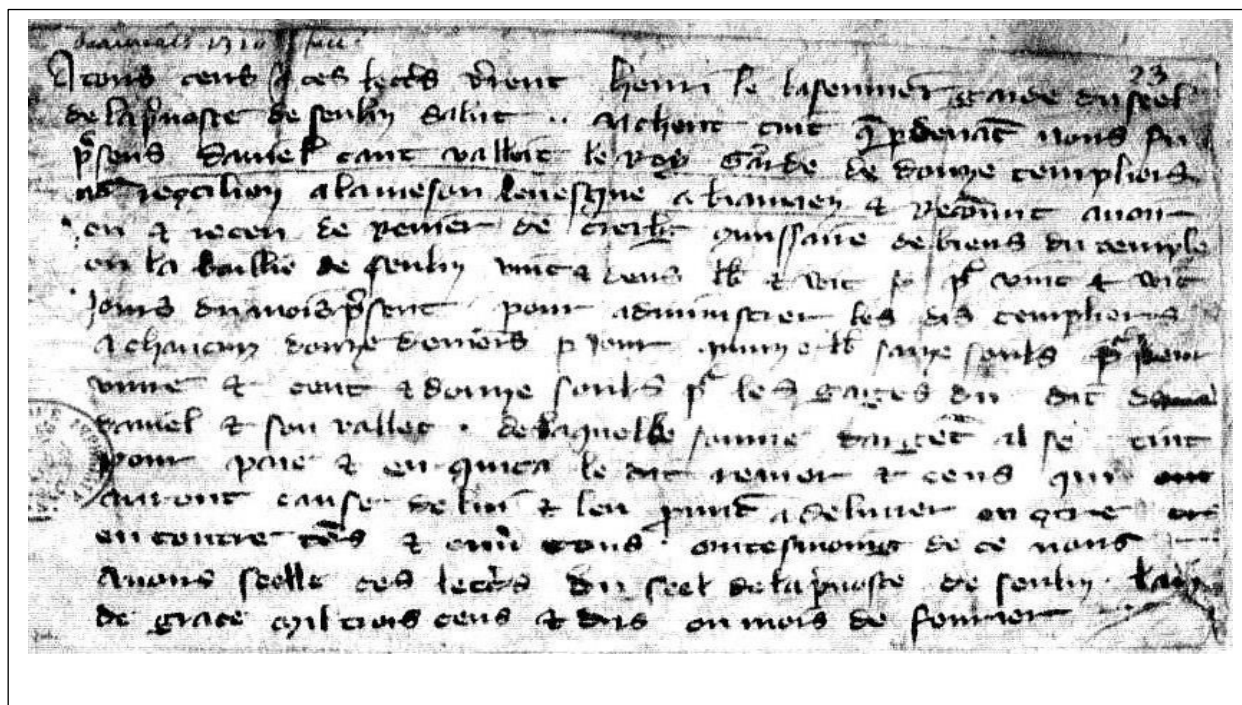 beauvais 1310 feu.
23
A tous ceus q ces lectres verront henri le lasennier garde du seel
de la pvoste de senliz salut .. sachent tuit q p devant nous fu
psens daniel vallet le roy garde de douze templiers
a la meson levesque a biauvez & recōnut avoir
eu & receu de renier de creel des biens du temple
en la baillie de senliz vint & deus lb & wit s pr vint & wit
jours du mois psent pour administrer les dis templiers
a chaucun douze deniers p jour saze souls pr
vivre & cent & douze souls pr les gages du dit
daniel & son vallet . de laquelle somme dargēt il se tint
pour paie & en quita le dit renier & ceus qui
auront cause de lui & leu a delivrer
encontre tos & tous en tesmoing de ce nous
avons seelle ces lectres du seel de la pvoste de senliz lan
de grace mil trois cens & dis ou mois de fevrier